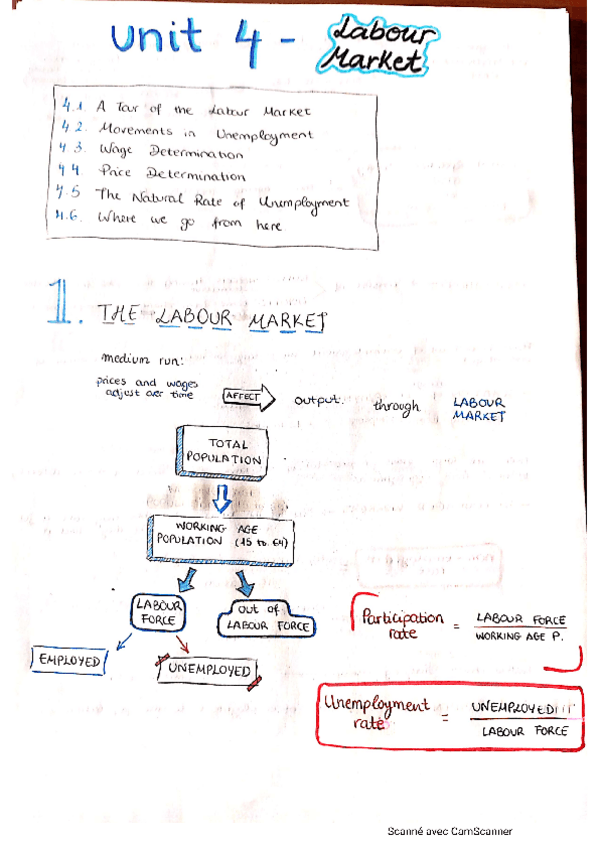 unit 4 - Labour
Market
4.1. A Tour of the Labour Market
4.2. Movements in Unemployment
4.3. Wage Determination
4.4. Price Determination
4.5 The Natural Rate of Unemployment
4.6. Where we go from here
1. THE LABOUR MARKET
medium run:
prices and wages
adjust over time
AFFECT
output.
through
LABOUR
MARKET
TOTAL
POPULATION
WORKING AGE
POPULATION (15 to 64)
LABOUR
FORCE
out of
LABOUR FORCE
EMPLOYED
UNEMPLOYED
Participation
rate
= LABOUR FORCE
WORKING AGE P.
Unemployment
rate
= UNEMPLOYED
LABOUR FORCE
Scanné avec CamScanner